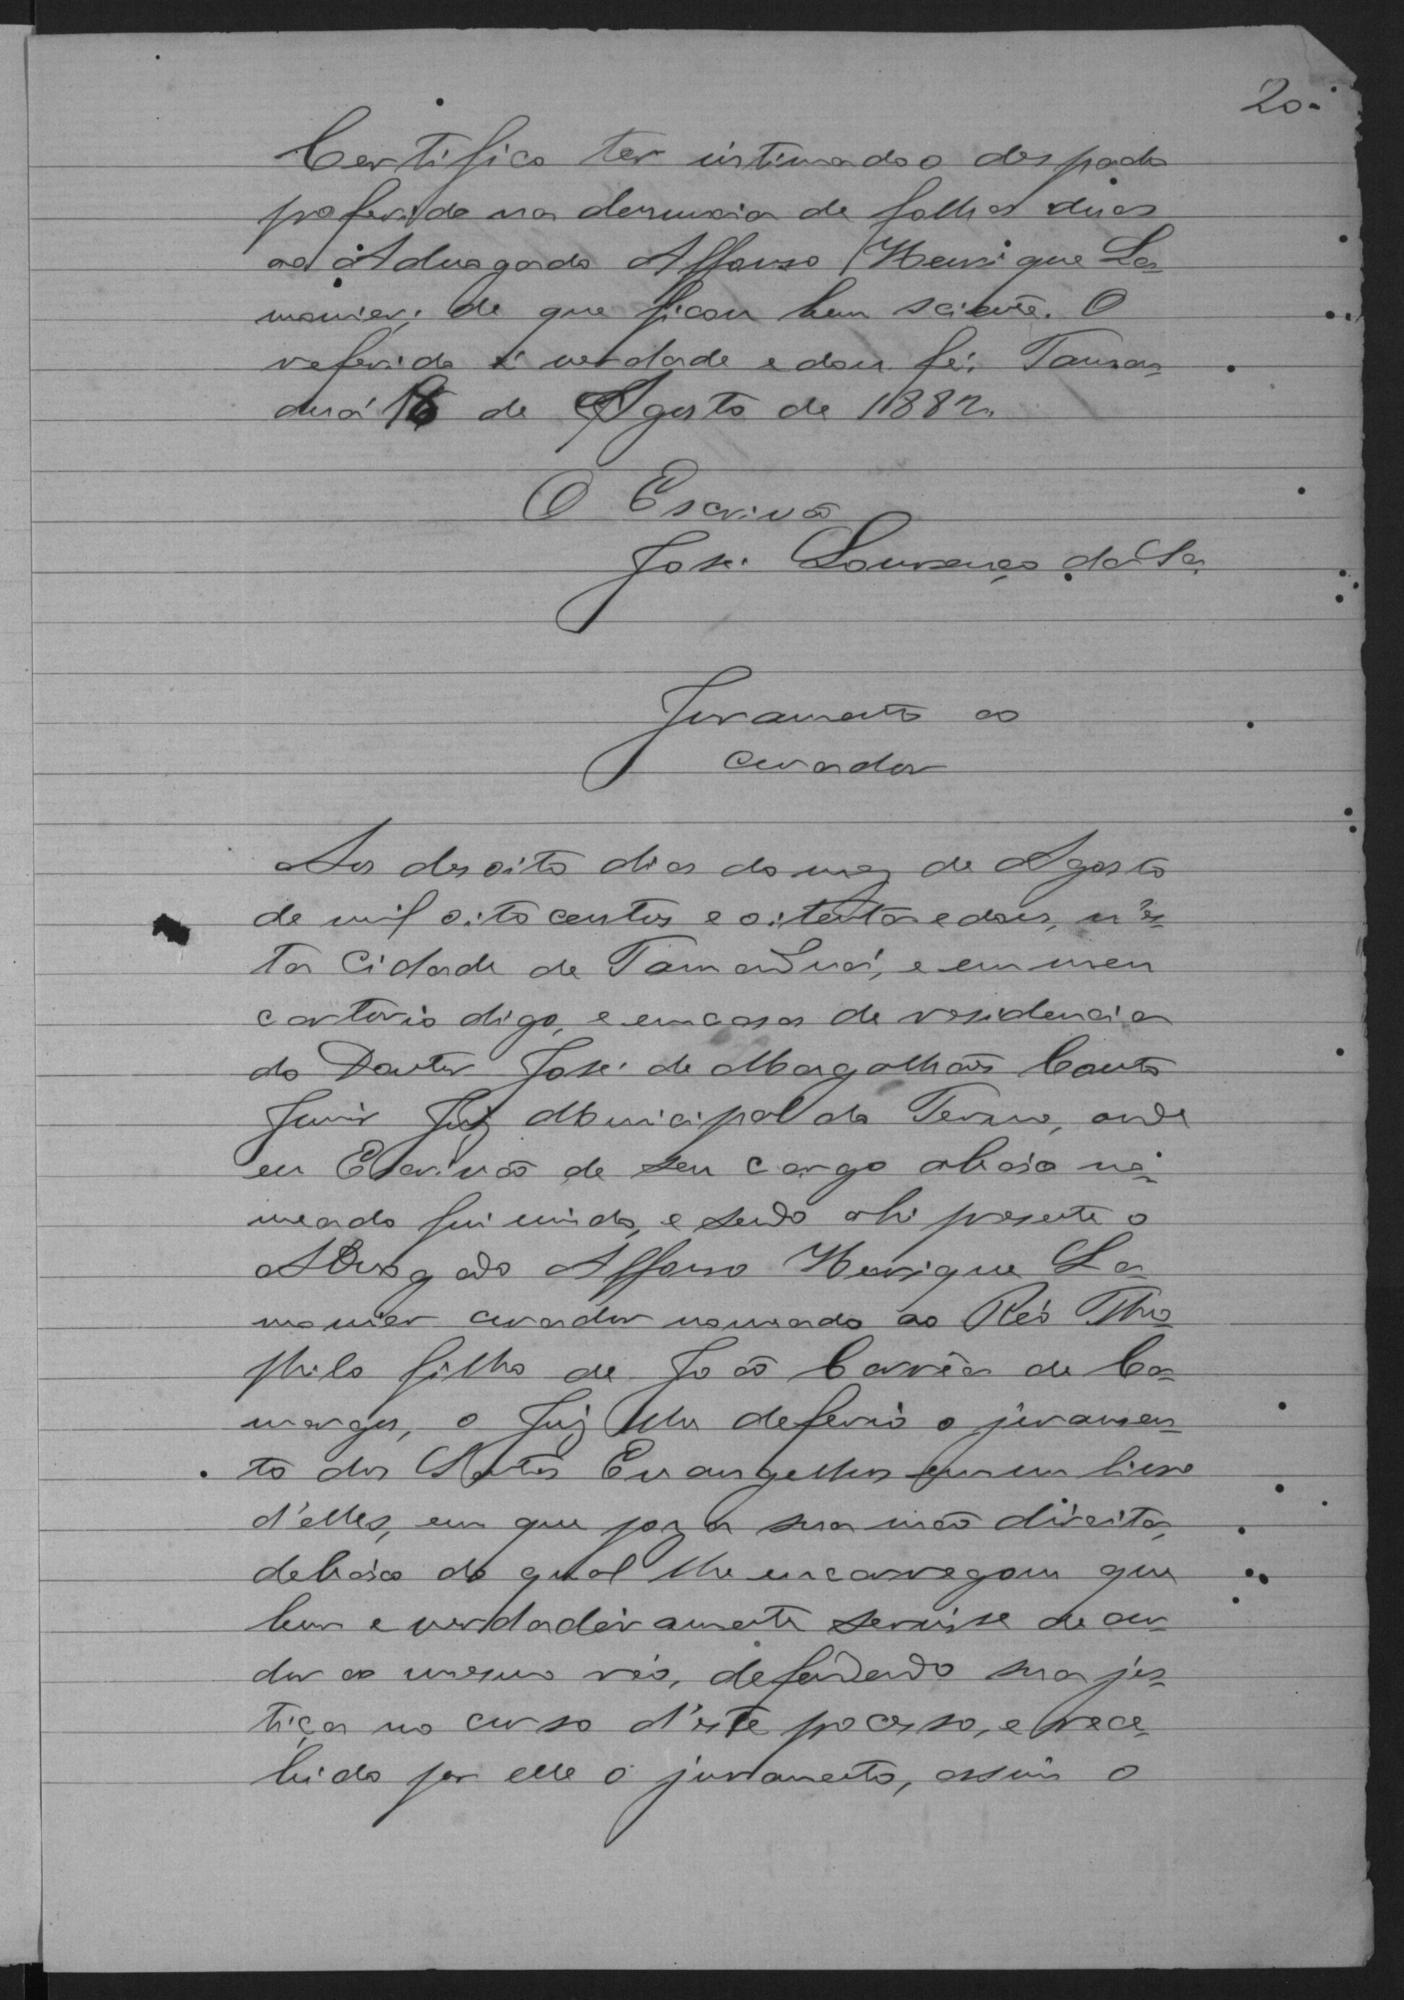 20.
Certifico ter intimado o despacho
proferido na denuncia de folhas duas
ao Advogado Affonso Henrique La-
monier; de que ficou bem sciente. O
referido é verdade e dou fé; Taman-
duá 18 de Agosto de 1882.
O Escrivão
José Lourenço da S.a
Juramento ao
curador
Aos desoito dias do mez de Agosto
de mil oito centos e oitenta e dous, n'es-
ta Cidade de Tamanduá, e em meu
cartorio digo, e em casa de residencia
do Doutor José de Magalhães Couto
Junior Juiz Municipal do Termo, onde
eu Escrivão de seu cargo abaixo no-
meado fui vindo, e sendo ahi presente o
Advogado Affonso Henrique La-
monier curador nomeado ao Réo Theo-
philo filho de João Corrêa de Ca-
margos, o Juiz lhe deferio o juramen-
to dos Santos Evangelhos em um livro
d'elles, em que poz a sua mão direita,
debaixo do qual lhe encarregou que
bem e verdadeiramente servisse de cu-
dor ao mesmo réo, defendendo sua jus-
tiça no curso d'este processo, e rece-
bido por elle o juramento, assim o